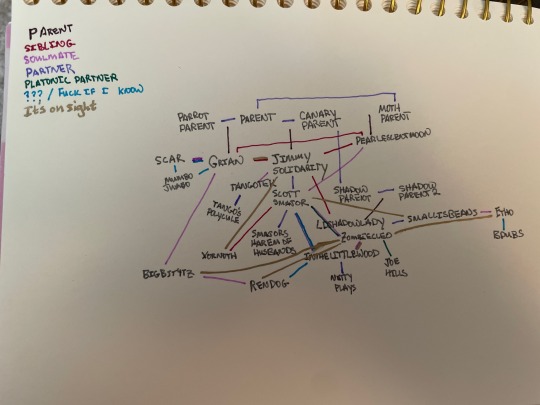 PARENT
SIBLING
SOULMATE
PARTNER
PLATONIC PARTNER
??? / FUCK IF I KNOW
It's on sight
PARROT
PARENT
PARENT
CANARY
PARENT
MOTH
PARENT
PEARLESCENTMOON
SCAR
GRIAN
JIMMY
SOLIDARITY
MUMBO
JUMBO
TANGOTEK
TANGO'S
POLYCULE
SCOTT
SMAJOR
SHADOW
PARENT
SHADOW
PARENT 2
SMAJORS
HAREM OF
HUSBANDS
LDSHADOWLADY
SMALLISHBEANS
ETHO
BDUBS
ZOMBIECLEO
XORNOTH
INTHELITTLEWOOD
JOE
HILLS
BIGBST4TZ
RENDOG
PLAYS